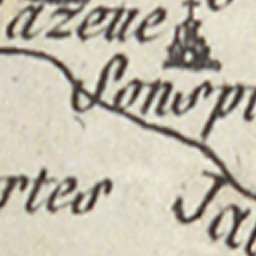 azeue
Sonspi
rtes
Ja